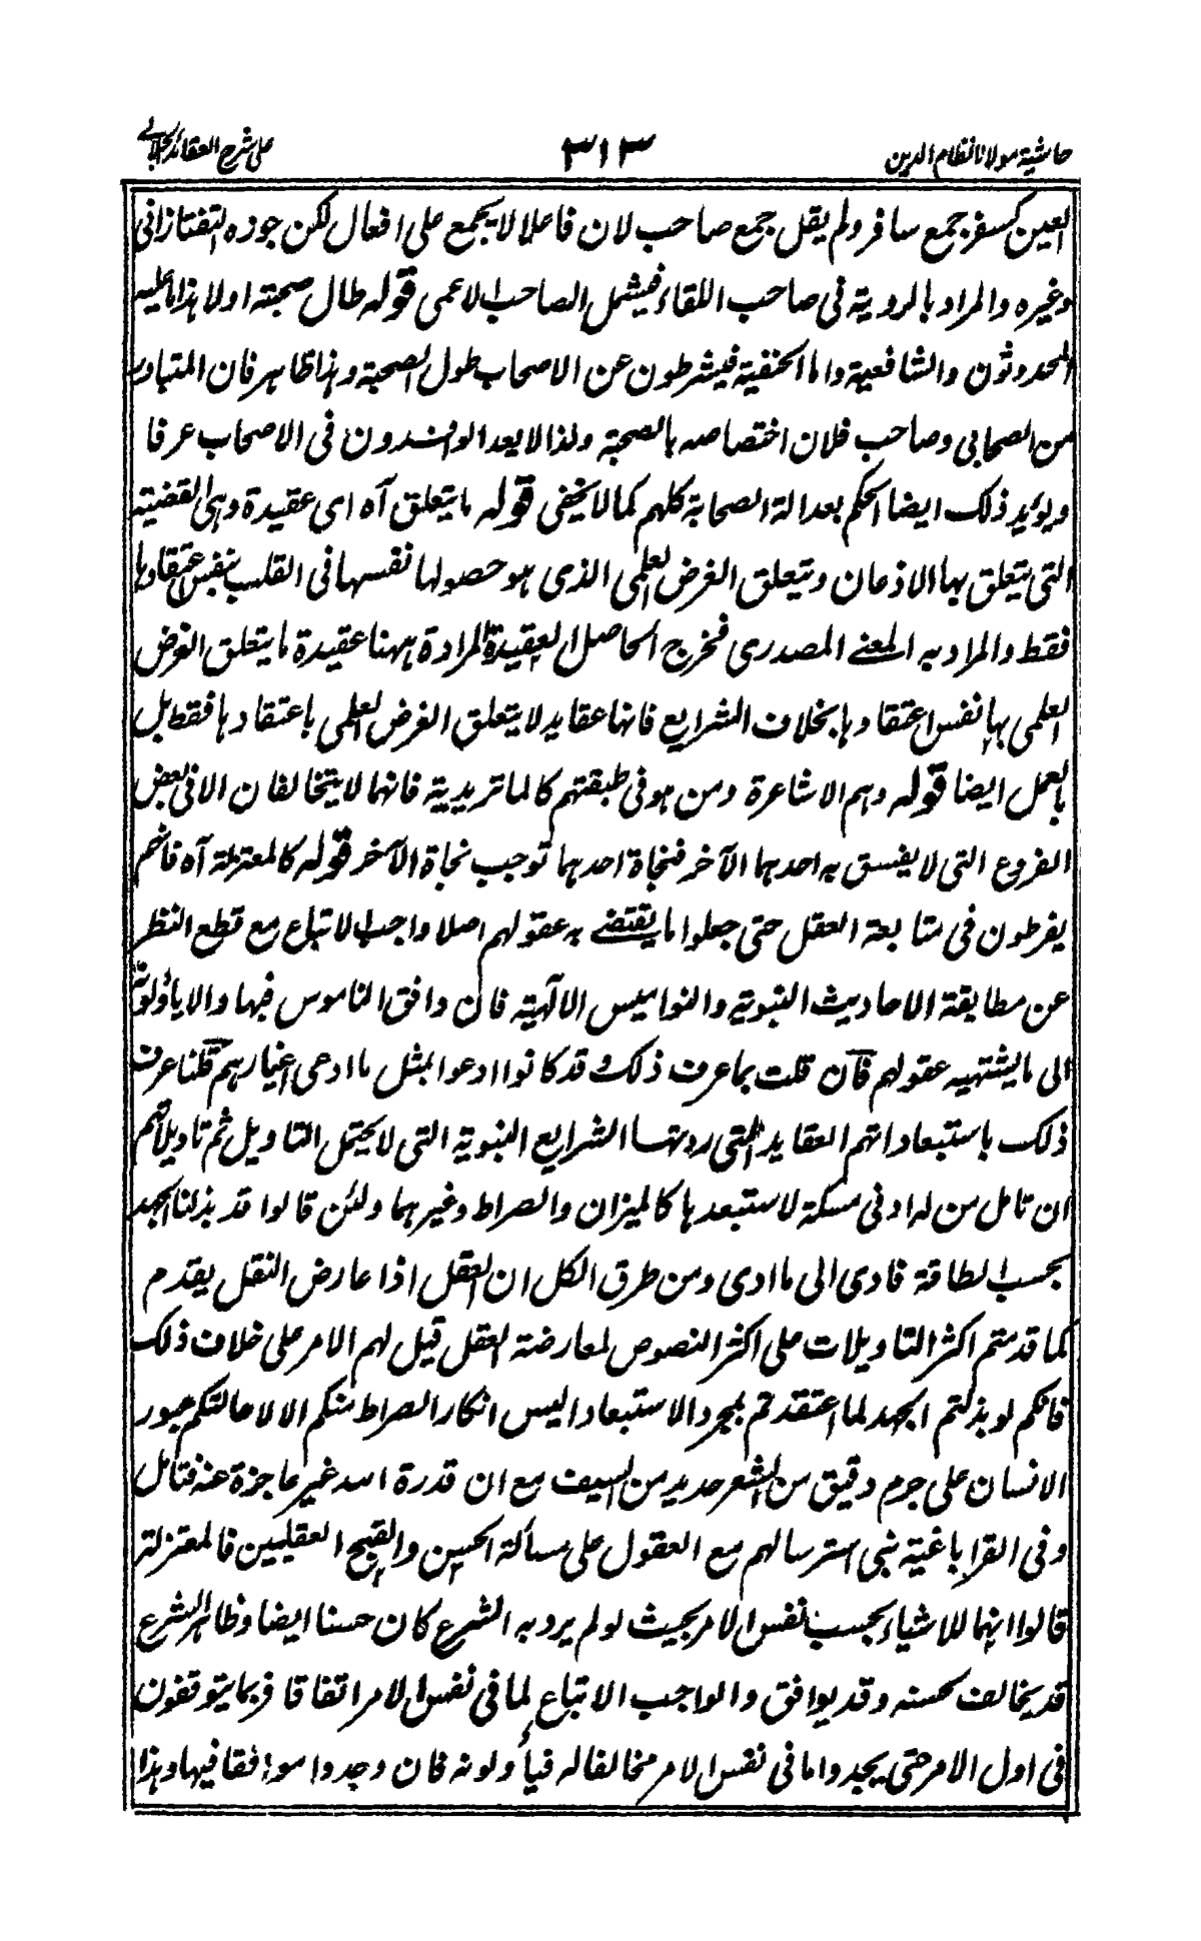 حاشية مولانا نظام الدين
٣١٣
على شرح العقائد الجلالي
العين كسفر جمع سافر ولم يقل جمع صاحب لان فاعلا لا يجمع على افعال لكن جوزه التفتازانى
وغيره والمراد بالروية فى صاحب اللقاء فيشمل الصاحب الاعمى قوله طال صحبته اولا هذا ما عليه
المحدثون والشافعية واما الحنفية فيشرطون عن الاصحاب طول الصحبة وهذا ظاهر فان المتبادر
من الصحابى وصاحب فلان اختصاصه بالصحبة ولذا لا يعد الوافدون فى الاصحاب عرفا
ويؤيد ذلك ايضا الحكم بعدالة الصحابة كلهم كما لا يخفى قوله ما يتعلق آه اى عقيدة وهى القضية
التى يتعلق بها الاذعان ويتعلق الغرض العلمى الذى هو حصولها نفسها فى القلب بنفس اعتقادها
فقط والمراد به المعنے المصدرى فخرج الحاصل ان العقيدة المرادة ههنا عقيدة ما يتعلق الغرض
العلمى بها بنفس اعتقادها بخلاف الشرايع فانها عقايد لا يتعلق الغرض العلمى باعتقادها فقط بل
بالعمل ايضا قوله وهم الاشاعرة ومن هو فى طبقتهم كالماتريدية فانهما لا يتخالفان الا فى بعض
الفروع التى لا يفسق به احدهما الآخر فنجاة احدهما توجب نجاة الآخر قوله كالمعتزلة آه فانهم
يفرطون فى متابعة العقل حتى جعلوا ما يقتضے به عقولهم اصلا واجب الاتباع مع قطع النظر
عن مطابقة الاحاديث النبوية والنواميس الالهية فان وافق الناموس فبها والا يأولونه
الى ما يشتهيه عقولهم فان قلت بما عرف ذلك وقد كانوا ادعوا بمثل ما ادعى اغيارهم قلنا عرف
ذلك باستبعاداتهم العقايد التى ردتها الشرايع النبوية التى لا يحتمل التاويل ثم تاويلاتهم
ان تامل من له ادنى مسكة لاستبعدها كالميزان والصراط وغيرهما ولئن قالوا قد بذلنا الجهد
بحسب الطاقة فادى الى ما ادى ومن طرق الكل ان العقل اذا عارض النقل يقدم
كما قدمتم اكثر التاويلات على اكثر النصوص لمعارضة العقل قيل لهم الامر على خلاف ذلك
فانكم لو بذلتم الجهد لما اعتقدتم بمجرد الاستبعاد اليس انكار الصراط منكم الا لاحالتكم عبور
الانسان على جرم دقيق من الشعر حديد من السيف مع ان قدرة الله غير عاجزة عنه فتامل
وفى القراباغية نبى استرسالهم مع العقول على مسألة الحسن والقبح العقليين فالمعتزلة
قالوا انهما للاشياء بحسب نفس الامر بحيث لو لم يرد به الشرع كان حسنا ايضا وظاهر الشرع
قد يخالف حسنه وقد يوافق والواجب الاتباع لما فى نفس الامر اتفاقا فربما يتوقفون
فى اول الامر حتى يجدوا ما فى نفس الامر مخالفا له فيأولونه فان وجدوا موافقا فيها وهذا